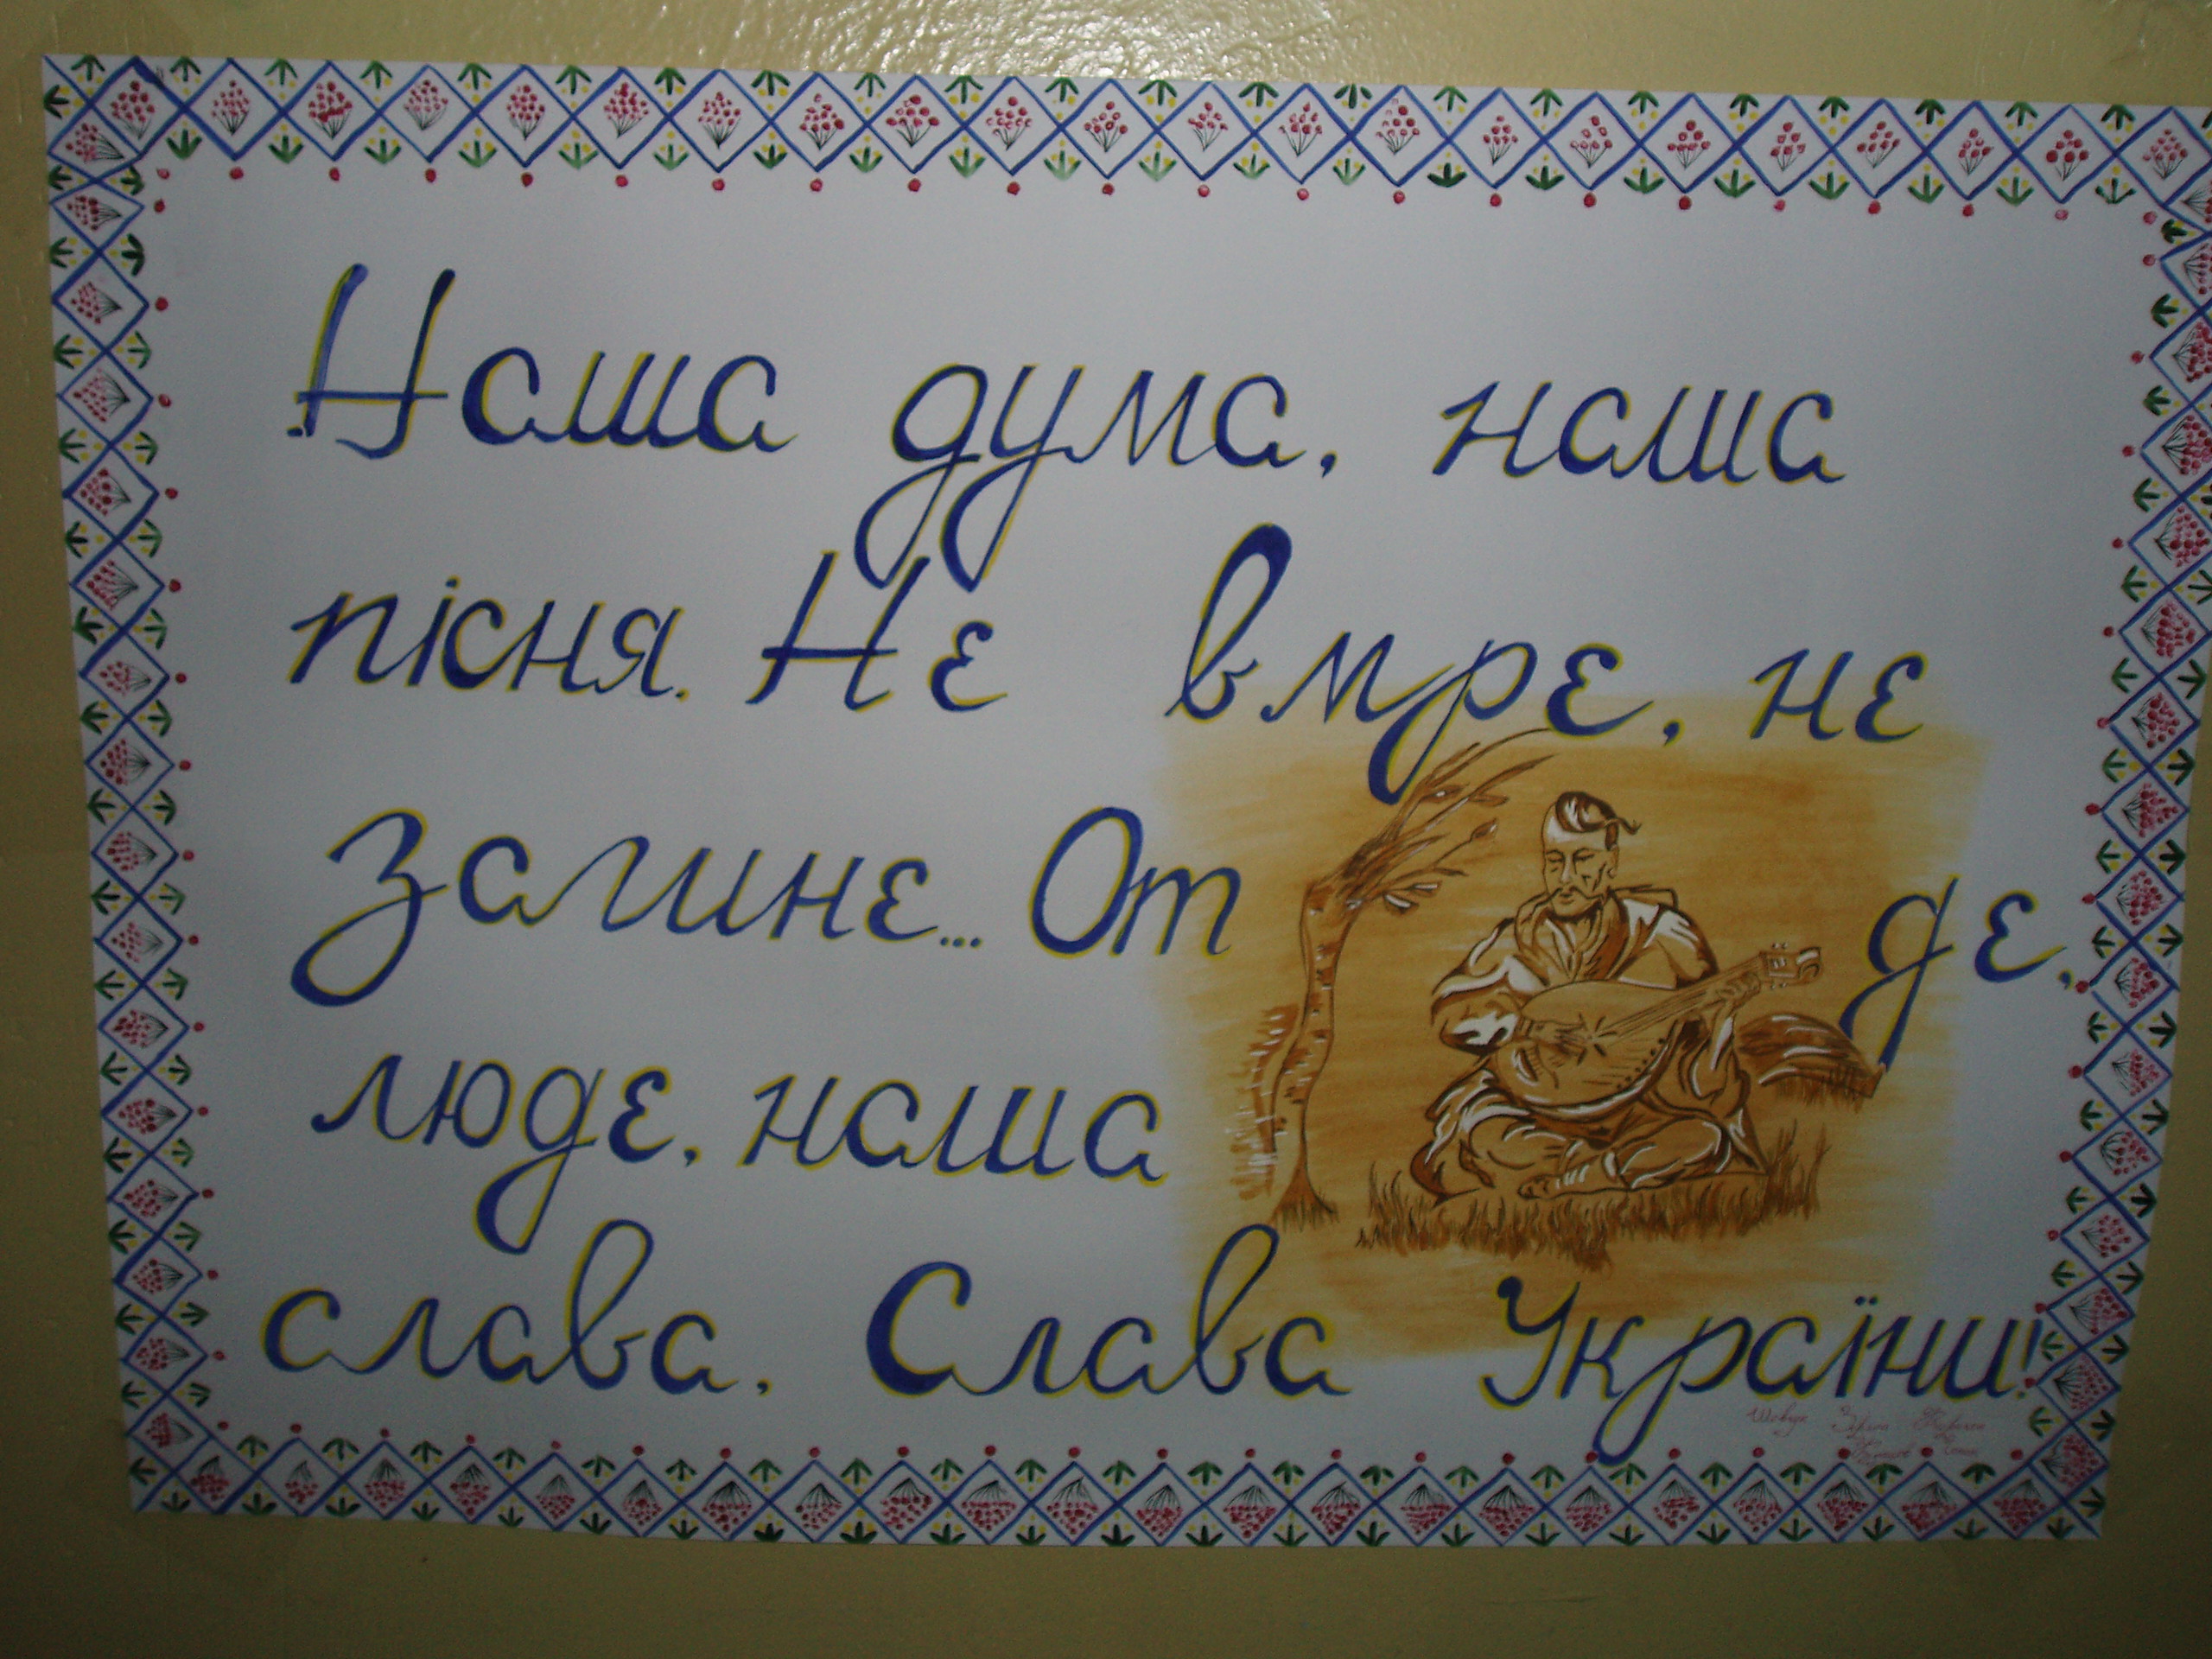 Наша дума, наша
пісня. Не вмре, не
загине... От де,
люде, наша
слава. Слава України!